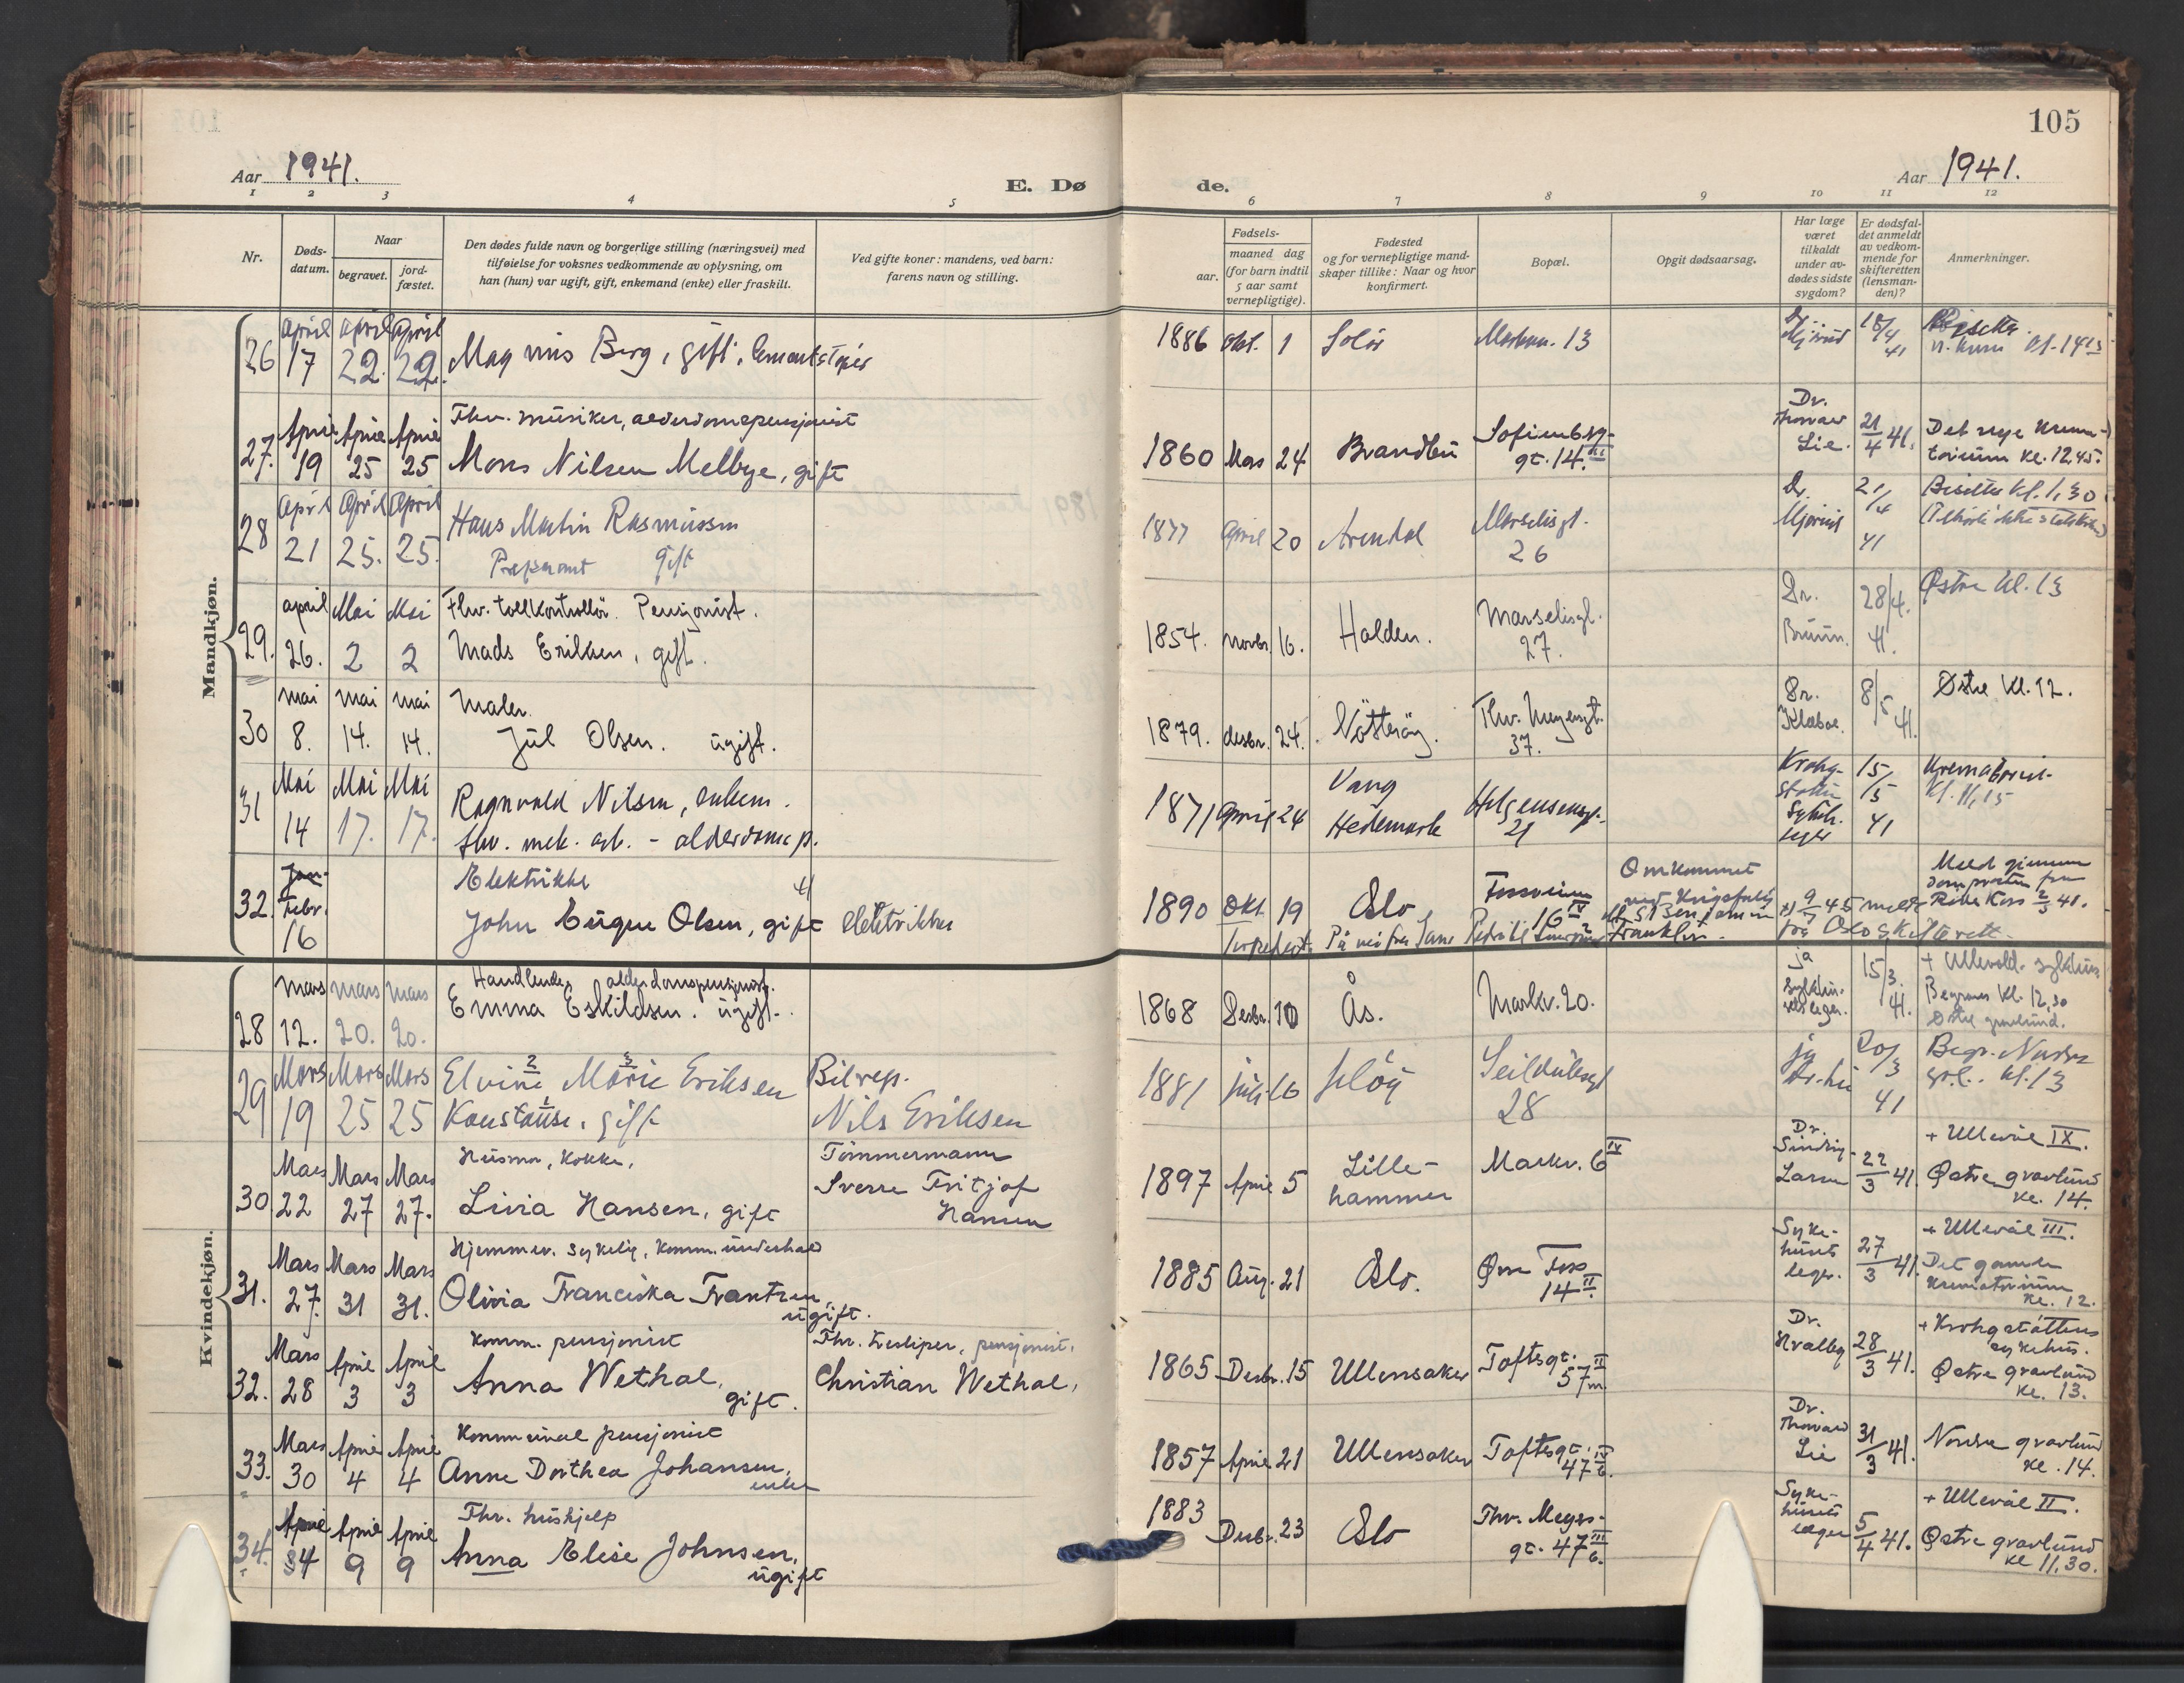 105
Aar 1941.
E. Dø
de.
Aar 1941.
1 2 3 4 5 6 7 8 9 10 11 12
Nr.
Døds-
datum.
Naar
begravet.
jord-
fæstet.
Den dødes fulde navn og borgerlige stilling (næringsvei) med
tilføielse for voksnes vedkommende av oplysning, om
han (hun) var ugift, gift, enkemand (enke) eller fraskilt.
Ved gifte koner: mandens, ved barn:
farens navn og stilling.
Fødsels-
aar.
maaned dag
(for barn indtil
5 aar samt
vernepligtige).
Fødested
og for vernepligtige mand-
skaper tillike: Naar og hvor
konfirmert.
Bopæl.
Opgit dødsaarsag.
Har læge
været
tilkaldt
under av-
dødes sidste
sygdom?
Er dødsfal-
det anmeldt
av vedkom-
mende for
skifteretten
(lensman-
den)?
Anmerkninger.
Mandkjøn.
26 April 17 April 22. April 22. Magnus Berg, gift, 1886 okt. 1 Solør Markvn. 13 18/4 41
27. April 19 April 25 April 25 Fhv. musiker, alderdomspensjonist
Mons Nilsen Melbye, gift 1860 Mars 24 Brandbu Sofienbgr-
gt. 14. III Dr.
Thorvald
Lie. 21/4 41. Det nye krema-
torium kl. 12,45.
28 April 21 April 25. April 25. Hans Martin Rasmussen
gift 1877 April 20 Arendal Marselisgt.
26 Dr. 21/4 41 Bisettes kl. 1,30
29. april 26. Mai 2 Mai 2 Fhv. tollkontrollør. Pensjonist.
Mads Eriksen, gift. 1854. novbr. 16. Halden. Marselisgt.
27. Dr.
Bruun. 28/4. 41. Østre kl. 13
30 mai 8. mai 14. mai 14. Maler.
Jul Olsen. ugift. 1879. desbr. 24. Nøtterøy. Thv. Meyersgt.
37. Dr.
Klaboe. 8/5 41. Østre kl. 12.
31 Mai 14 Mai 17. Mai 17. Ragnvald Nilsen, enkem.
fhv. mek. arb. - alderdoms p. 1871 April 24 Vang
Hedemark Helgesensgt.
21 Krohg-
støtten
Sykeh.
lege 15/5 41 Krematoriet
kl. 11,15
32. Jan- Febr. 16 Elektriker
John Eugen Olsen, gift elektriker 1890 Okt 19 Oslo Fossveien
16 IV Omkommet
ved krigsforlis Benjamin
Franklin. 9/7 45 Meld. gjennem
fra
Røde Kors 2/5 41.
torpedert. På vei fra Oslo skifterett.
Kvindekjøn.
28 mars 12. mars 20. mars 20. Handlende, alderdomspensjonist.
Emma Eskildsen. ugift. 1868 Desbr. 10 Ås. Markv. 20. ja 15/3. 41. + Ullevål sykehus
Begraves kl. 12,30
Østre gravlund.
29 Mars 19 Mars 25 Mars 25 Elvine 2 Marie 3 Eriksen
Konstanse 1, gift Bilrep.
Nils Eriksen 1881 juli 16 Seilduksgt
28 ja 20/3 41 Begr. Nordre
gr.l. kl. 13
30 Mars 22 Mars 27 Mars 27. Husmor, kokke,
Livia Hansen, gift Tømmermann
Sverre Fritjof
Hansen 1897 April 5 Lille-
hammer Markv. 6 IV Dr.
Sinding-
Larsen 22/3 41. + Ullevål IX.
Østre gravlund
kl. 14.
31. Mars 27. Mars 31 Mars 31. Hjemmev. sykelig, komm. underhold
Olivia Franciska Frantzen,
ugift. 1885 Aug. 21 Oslo. Øvre Foss
14 II. Syke-
husets
leger. 27/3 41. + Ullevål III.
Det gamle
krematorium
kl. 12.
32. Mars 28 April 3 April 3 Komm. pensjonist
Anna Wethal,
gift. Fhv. pensjonist.
Christian Wethal, 1865 Desbr. 15 Ullensaker Toftesgt.
57 II m. Dr.
Kvalby 28/3 41. + Krohgstøttens
sykehus.
Østre gravlund
kl. 13.
33. Mars 30 April 4 April 4 Kommunal pensjonist
Anne Dorthea Johansen,
enke 1857 April 21 Ullensaker Toftesgt.
47 IV 6. Dr.
Thorvald
Lie 31/3 41. Nordre gravlund
kl. 14.
34. April 4 April 9 April 9 Fhv. hushjelp
Anna Elise Johnsen,
ugift 1883 Desbr. 23 Oslo Thv. Meyers-
gt. 47 III 6. Syke-
husets
leger 5/4 41. + Ullevål II.
Østre gravlund
kl 11,30.